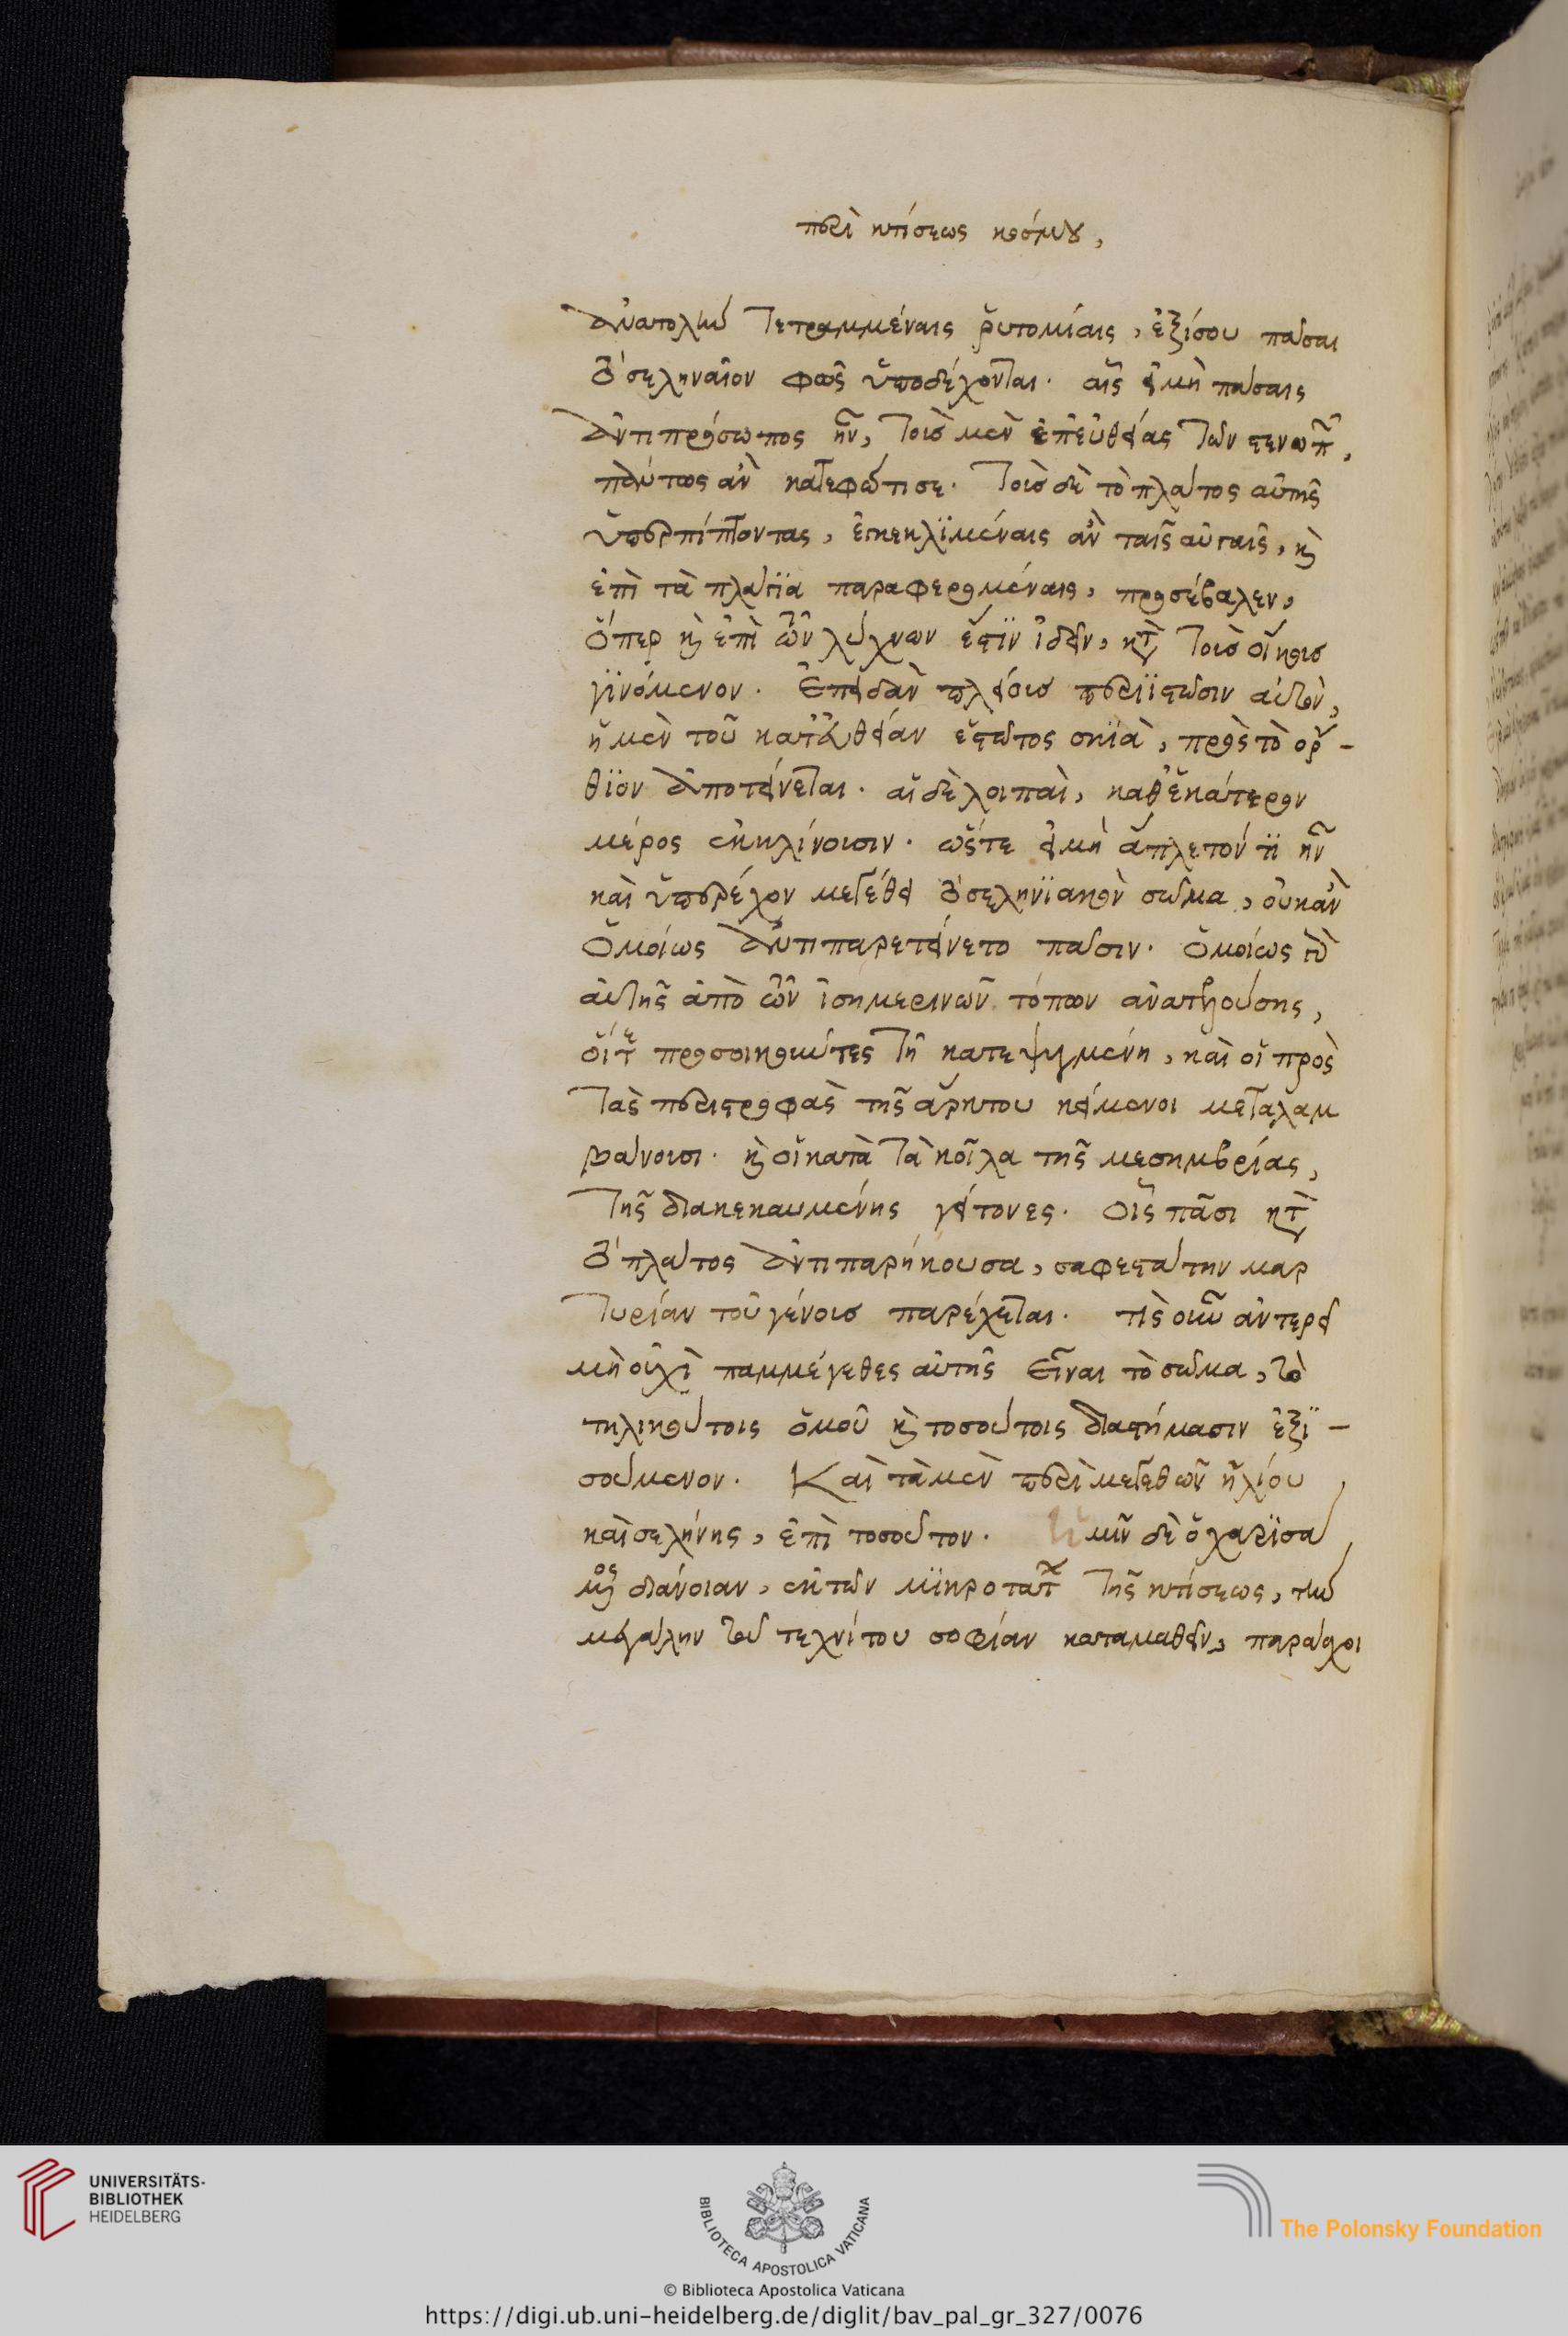 περὶ κτίσεως κόσμου,
ἀνατολὴν τετραμμέναις ῥυτομίαις, ἐξίσου πᾶσαι
τὸ σεληναῖον φῶς ὑποδέχονται. αἷς εἰ μὴ πάσαις
ἀντιπρόσωπος ἦν, τοὺς μὲν ἐπευθείας τῶν στενωπῶν,
πάντως ἂν κατεφώτισε. τοὺς δὲ τὸ πλάτος αὐτῆς
ὑπερπίπτοντας, ἐγκεκλϊμέναις ἂν ταῖς αὐγαῖς, κὶ
ἐπὶ τὰ πλάγϊα παραφερομέναις, προσέβαλεν,
ὅπερ κὶ ἐπὶ τῶν λύχνων ἔστϊν ἰδεῖν, κατὰ τοὺς οἴκους
γϊνόμενον. Ἐπειδὰν πλείους περιϊστῶσιν αὐτὸν,
ἡ μὲν τοῦ κατευθεῖαν ἑστῶτος σκϊὰ, πρὸς τὸ ὄρ-
θϊον ἀποτείνεται. αἱ δὲ λοιπαὶ, καθ' ἑκάτερον
μέρος ἐκκλίνουσιν. ὥστε εἰ μὴ ἄπλετόν τϊ ἦν
καὶ ὑπερέχον μεγέθει τὸ σεληνϊακὸν σῶμα, οὐκ ἂν
ὁμοίως ἀντιπαρετείνετο πᾶσιν. ὁμοίως γὰρ
αὐτῆς ἀπὸ τῶν ἰσημερινῶν τόπων ἀνατελλούσης,
οἵ τε προσοικοῦντες τῇ κατεψυγμένῃ, καὶ οἱ πρὸς
τὰς περιστροφὰς τῆς ἄρκτου κείμενοι μεταλαμ
βάνουσι. κὶ οἱ κατὰ τὰ κοῖλα τῆς μεσημβρίας,
τῆς διακεκαυμένης γείτονες. οἷς πᾶσι κατὰ
τὸ πλάτος ἀντιπαρήκουσα, σαφεστάτην μαρ
τυρίαν τοῦ γένους παρέχεται. τίς οὖν ἀντερεῖ
μὴ οὐχὶ παμμέγεθες αὐτῆς εἶναι τὸ σῶμα, τὸ
τηλικούτοις ὁμοῦ κὶ τοσούτοις διαστήμασιν ἐξϊ-
σούμενον. Καὶ τὰ μὲν περὶ μεγεθῶν ἡλίου
καὶ σελήνης, ἐπὶ τοσοῦτον. Ἡμῖν δὲ ὁ χαρϊσά
μενος διάνοιαν, ἐκ τῶν μϊκροτάτων τῆς κτίσεως, τὴν
μεγάλην τοῦ τεχνίτου σοφίαν καταμαθεῖν, παράσχοι
UNIVERSITÄTS-
BIBLIOTHEK
HEIDELBERG
BIBLIOTECA APOSTOLICA VATICANA
The Polonsky Foundation
© Biblioteca Apostolica Vaticana
https://digi.ub.uni-heidelberg.de/diglit/bav_pal_gr_327/0076